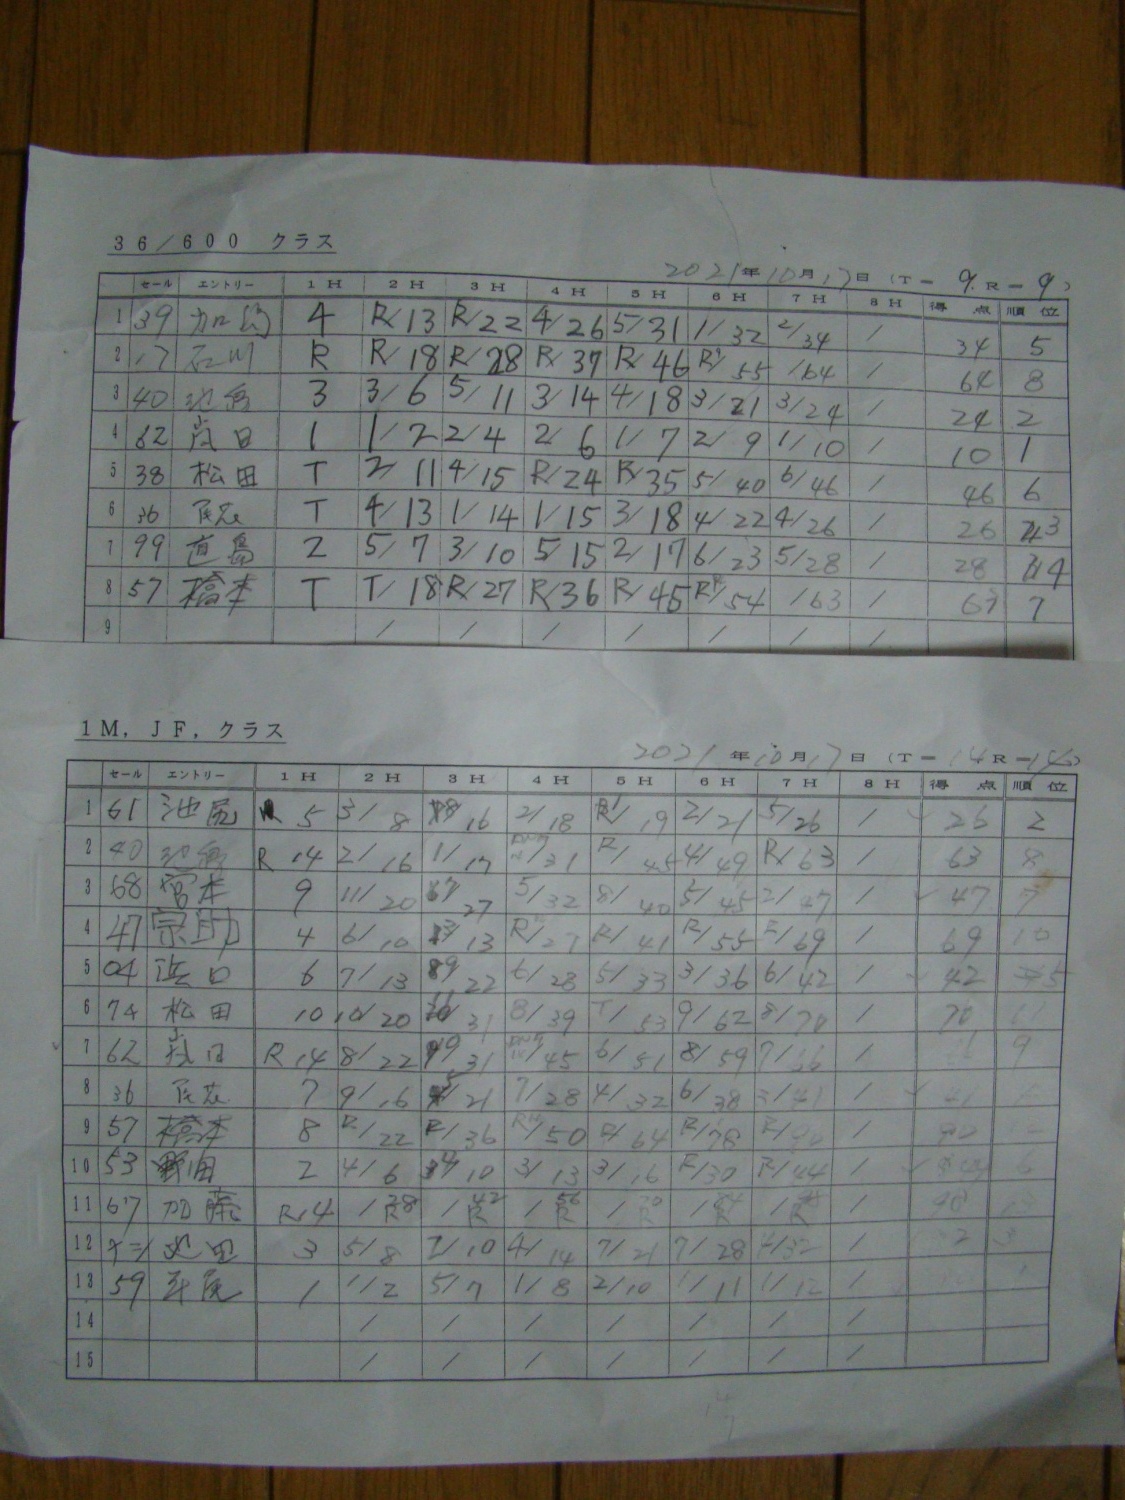 36/600 クラス
2021年10月17日 (T- 9. R- 9)
セール エントリー 1H 2H 3H 4H 5H 6H 7H 8H 得点 順位
1 39 4 R/13 R/22 4/26 5/31 1/32 2/34 / 34 5
2 17 石川 R R/18 R/28 R/37 R/46 R/55 /64 / 64 8
3 40 3 3/6 5/11 3/14 4/18 3/21 3/24 / 24 2
4 62 1 1/2 2/4 2/6 1/7 2/9 1/10 / 10 1
5 38 松田 T 2/11 4/15 R/24 R/35 5/40 6/46 / 46 6
6 36 T 4/13 1/14 1/15 3/18 4/22 4/26 / 26 3
7 99 直島 2 5/7 3/10 5/15 2/17 6/23 5/28 / 28 4
8 57 橋本 T T/18 R/27 R/36 R/45 R/54 /63 / 63 7
9 / / / / / / /
1M, JF, クラス
2021年10月17日 (T- 14 R- 14)
セール エントリー 1H 2H 3H 4H 5H 6H 7H 8H 得点 順位
1 61 池尻 5 3/8 8/16 2/18 /19 2/21 5/26 / 26 2
2 40 R 14 2/16 1/17 /31 R/45 4/49 R/63 / 63 8
3 68 宮本 9 11/20 7/27 5/32 8/40 5/45 2/47 / 47 7
4 47 宗助 4 6/10 3/13 R/27 R/41 R/55 /69 / 69 10
5 04 浜口 6 7/13 9/22 6/28 5/33 3/36 6/42 / 42 5
6 74 松田 10 10/20 /31 8/39 T/53 9/62 8/70 / 70 11
7 62 R 14 8/22 9/31 /45 6/51 8/59 7/66 / 9
8 36 7 9/16 5/21 7/28 4/32 6/38 3/41 / 41
9 57 橋本 8 R/22 R/36 R/50 R/64 R/78 / 90
10 53 2 4/6 4/10 3/13 3/16 R/30 R/44 / 6
11 67 加藤 R14 /28 R /42 R /56 R /70 R /84 R /98 R / 98
12 池田 3 5/8 2/10 4/14 7/21 7/28 /32 / 3
13 59 1 1/2 5/7 1/8 2/10 1/11 1/12 /
14 / / / / / / /
15 / / / / / / /